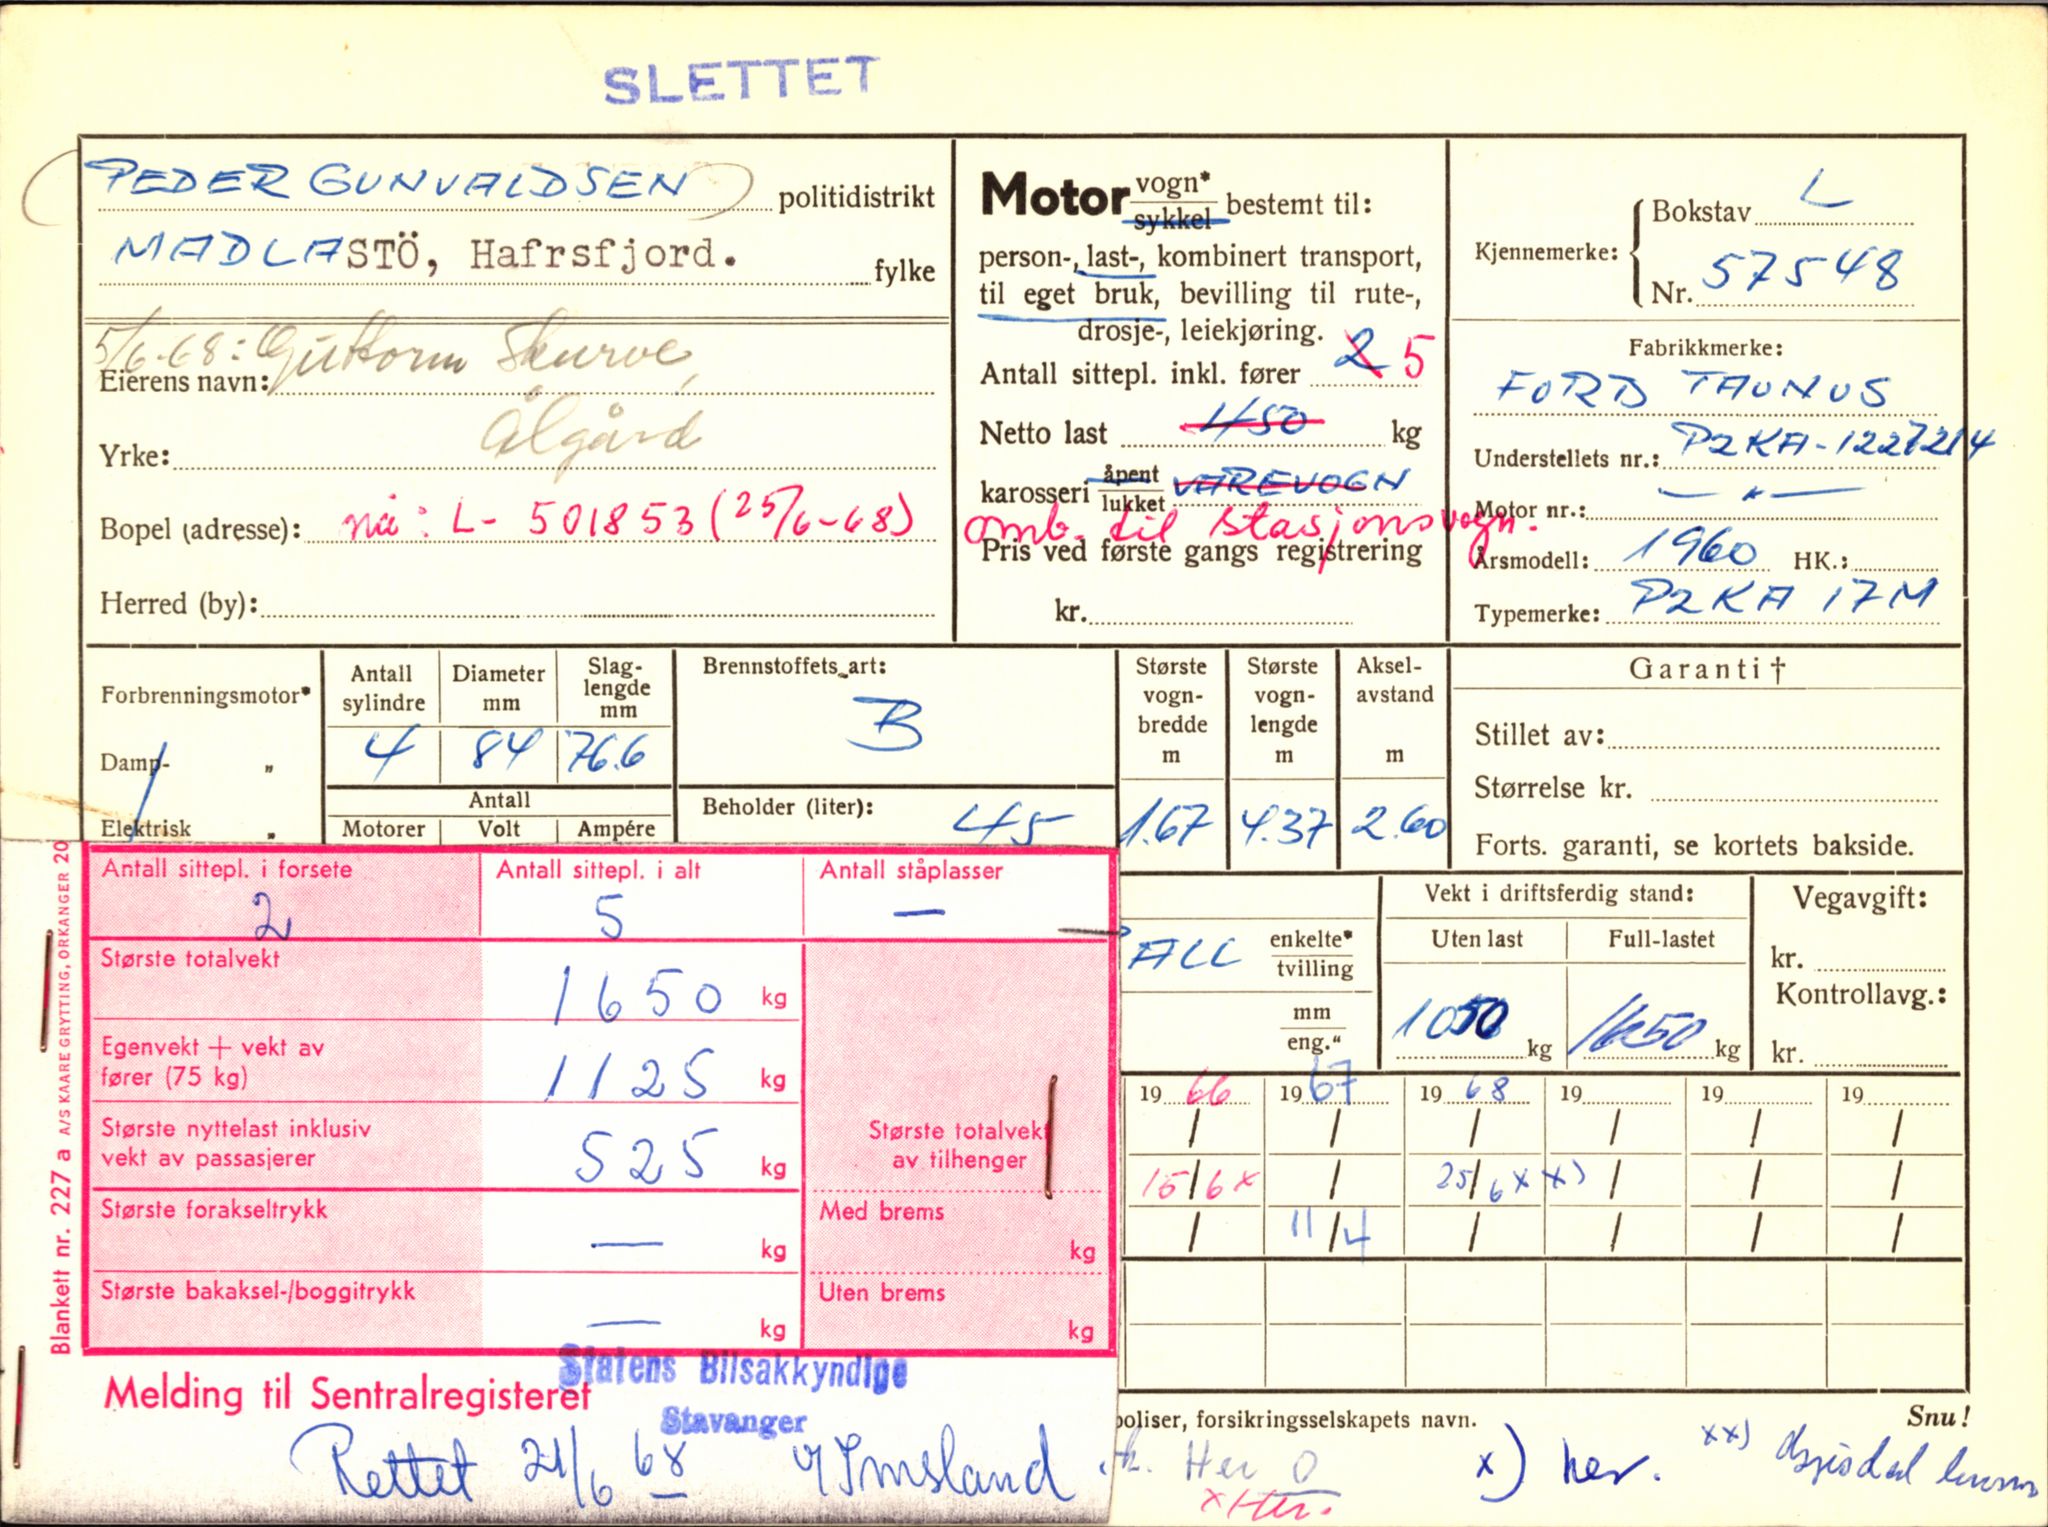 SLETTET
PEDER GUNVALDSEN politidistrikt
MADLASTÖ, Hafrsfjord. fylke
5/6-68: Guttorm Skurve,
Eierens navn:
Ålgård
Yrke:
Bopel (adresse): nå: L- 501853 (25/6-68)
Herred (by):
Motor vogn* sykkel bestemt til:
person-, last-, kombinert transport,
til eget bruk, bevilling til rute-,
drosje-, leiekjøring.
Antall sittepl. inkl. fører 2 5
Netto last 450 kg
karosseri åpent lukket VAREVOGN
omb. til stasjonsvogn.
Pris ved første gangs registrering
kr.
Kjennemerke: Bokstav L
Nr. 57548
Fabrikkmerke:
FORD TAUNUS
Understellets nr.: P2KA-1227214
Motor nr.: — " —
Årsmodell: 1960 HK.:
Typemerke: P2KA 17M
Forbrenningsmotor*
Damp- „
Elektrisk „
Antall sylindre Diameter mm Slag-lengde mm
4 84 76.6
Antall
Motorer Volt Ampére
Brennstoffets art:
B
Beholder (liter): 45
Største vogn-bredde m Største vogn-lengde m Aksel-avstand m
1.67 4.37 2.60
Garanti †
Stillet av:
Størrelse kr.
Forts. garanti, se kortets bakside.
ALL enkelte* tvilling
mm eng."
Vekt i driftsferdig stand:
Uten last Full-lastet
1050 kg 1650 kg
Vegavgift:
kr.
Kontrollavg.:
kr.
19 66 19 67 19 68 19 19 19
/ / / / / /
15/6 x / 25/6 x x) / / /
/ 11/4 / / / /
Blankett nr. 227 a A/S KAARE GRYTTING, ORKANGER 20
Antall sittepl. i forsete Antall sittepl. i alt Antall ståplasser
2 5 —
Største totalvekt 1650 kg
Egenvekt + vekt av
fører (75 kg) 1125 kg
Største nyttelast inklusiv
vekt av passasjerer 525 kg
Største totalvekt
av tilhenger
Største forakseltrykk — kg
Med brems kg
Største bakaksel-/boggitrykk — kg
Uten brems kg
Melding til Sentralregisteret
Statens Bilsakkyndige
Stavanger
Rettet 21/6 68 Imsland
poliser, forsikringsselskapets navn. Snu!
Her O x) her. xx)
x Her.